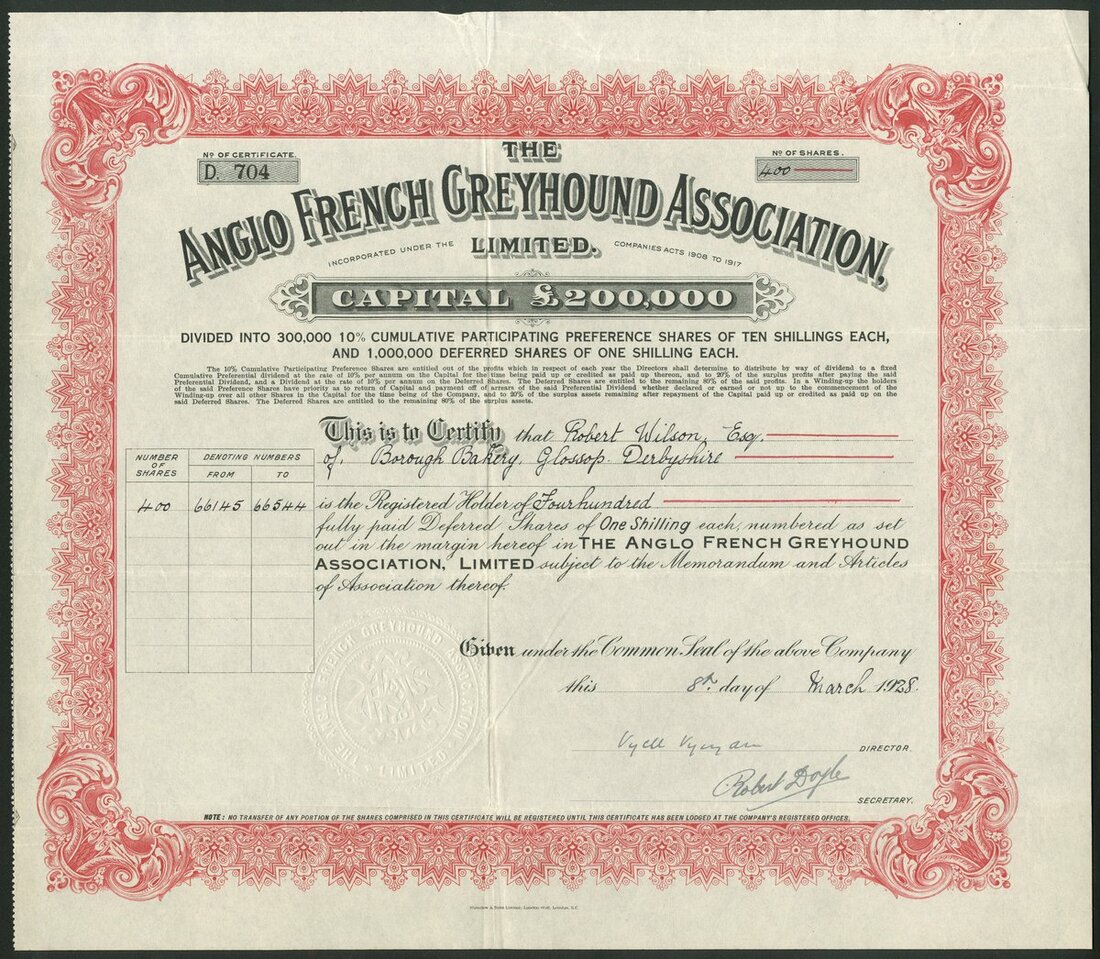 Nº OF CERTIFICATE.
D. 704
Nº OF SHARES.
400
THE
ANGLO FRENCH GREYHOUND ASSOCIATION,
INCORPORATED UNDER THE LIMITED. COMPANIES ACTS 1908 TO 1917
CAPITAL £200,000
DIVIDED INTO 300,000 10% CUMULATIVE PARTICIPATING PREFERENCE SHARES OF TEN SHILLINGS EACH,
AND 1,000,000 DEFERRED SHARES OF ONE SHILLING EACH.
The 10% Cumulative Participating Preference Shares are entitled out of the profits which in respect of each year the Directors shall determine to distribute by way of dividend to a fixed
Cumulative Preferential dividend at the rate of 10% per annum on the Capital for the time being paid up or credited as paid up thereon, and to 20% of the surplus profits after paying the said
Preferential Dividend, and a Dividend at the rate of 10% per annum on the Deferred Shares. The Deferred Shares are entitled to the remaining 80% of the said profits. In a Winding-up the holders
of the said Preference Shares have priority as to return of Capital and payment off of arrears of the said Preferential Dividend whether declared or earned or not up to the commencement of the
Winding-up over all other Shares in the Capital for the time being of the Company, and to 20% of the surplus assets remaining after repayment of the Capital paid up or credited as paid up on the
said Deferred Shares. The Deferred Shares are entitled to the remaining 80% of the surplus assets.
This is to Certify that Robert Wilson, Esq.
of, Borough Bakery, Glossop. Derbyshire
NUMBER OF SHARES
DENOTING NUMBERS
FROM TO
400 66145 66544
is the Registered Holder of Fourhundred
fully paid Deferred Shares of One Shilling each, numbered as set
out in the margin hereof in THE ANGLO FRENCH GREYHOUND
ASSOCIATION, LIMITED subject to the Memorandum and Articles
of Association thereof.
Given under the Common Seal of the above Company
this 8th day of March 1928.
THE ANGLO FRENCH GREYHOUND ASSOCIATION LIMITED
DIRECTOR.
Robert Doyle
SECRETARY.
NOTE: NO TRANSFER OF ANY PORTION OF THE SHARES COMPRISED IN THIS CERTIFICATE WILL BE REGISTERED UNTIL THIS CERTIFICATE HAS BEEN LODGED AT THE COMPANY'S REGISTERED OFFICES.